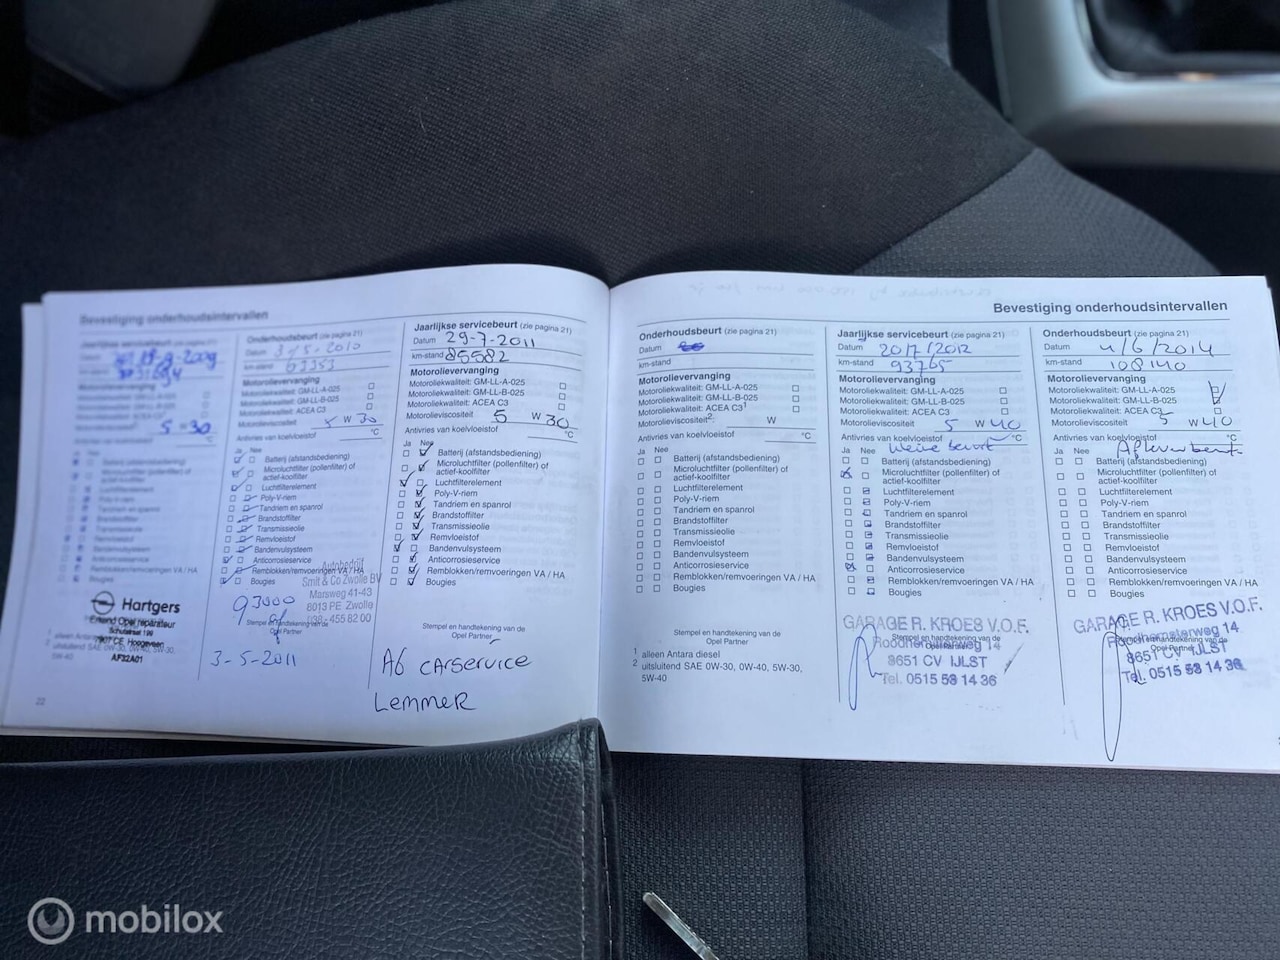 Bevestiging onderhoudsintervallen
Jaarlijkse servicebeurt
Datum
5 W 30
Hartgers
Erkend Opel reparateur
Schutstraat 199
7907 CE Hoogeveen
AF32A01
alleen Antara
22
Onderhoudsbeurt (zie pagina 21)
Datum 3/5-2010
km-stand 63353
Motorolievervanging
Motoroliekwaliteit: GM-LL-A-025
Motoroliekwaliteit: GM-LL-B-025
Motoroliekwaliteit: ACEA C3
Motorolieviscositeit 5 W 30
Antivries van koelvloeistof °C
Ja Nee
Batterij (afstandsbediening)
Microluchtfilter (pollenfilter) of
actief-koolfilter
Luchtfilterelement
Poly-V-riem
Tandriem en spanrol
Brandstoffilter
Transmissieolie
Remvloeistof
Bandenvulsysteem
Anticorrosieservice
Remblokken/remvoeringen VA / HA
Bougies
Autobedrijf
Smit & Co Zwolle BV
Marsweg 41-43
8013 PE Zwolle
038- 455 82 00
93000
Stempel en handtekening van de
Opel Partner
3-5-2011
Jaarlijkse servicebeurt (zie pagina 21)
Datum 29-7-2011
km-stand 85582
Motorolievervanging
Motoroliekwaliteit: GM-LL-A-025
Motoroliekwaliteit: GM-LL-B-025
Motoroliekwaliteit: ACEA C3
Motorolieviscositeit 5 W 30
Antivries van koelvloeistof °C
Ja Nee
Batterij (afstandsbediening)
Microluchtfilter (pollenfilter) of
actief-koolfilter
Luchtfilterelement
Poly-V-riem
Tandriem en spanrol
Brandstoffilter
Transmissieolie
Remvloeistof
Bandenvulsysteem
Anticorrosieservice
Remblokken/remvoeringen VA / HA
Bougies
Stempel en handtekening van de
Opel Partner
A6 CARSERVICE
Lemmer
Bevestiging onderhoudsintervallen
Onderhoudsbeurt (zie pagina 21)
Datum
km-stand
Motorolievervanging
Motoroliekwaliteit: GM-LL-A-025
Motoroliekwaliteit: GM-LL-B-025
Motoroliekwaliteit: ACEA C3¹
Motorolieviscositeit²: W
Antivries van koelvloeistof °C
Ja Nee
Batterij (afstandsbediening)
Microluchtfilter (pollenfilter) of
actief-koolfilter
Luchtfilterelement
Poly-V-riem
Tandriem en spanrol
Brandstoffilter
Transmissieolie
Remvloeistof
Bandenvulsysteem
Anticorrosieservice
Remblokken/remvoeringen VA / HA
Bougies
Stempel en handtekening van de
Opel Partner
¹ alleen Antara diesel
² uitsluitend SAE 0W-30, 0W-40, 5W-30,
5W-40
Jaarlijkse servicebeurt (zie pagina 21)
Datum 20/7/2012
km-stand 93765
Motorolievervanging
Motoroliekwaliteit: GM-LL-A-025
Motoroliekwaliteit: GM-LL-B-025
Motoroliekwaliteit: ACEA C3
Motorolieviscositeit 5 W 40
Antivries van koelvloeistof °C
Ja Nee kleine beurt
Batterij (afstandsbediening)
Microluchtfilter (pollenfilter) of
actief-koolfilter
Luchtfilterelement
Poly-V-riem
Tandriem en spanrol
Brandstoffilter
Transmissieolie
Remvloeistof
Bandenvulsysteem
Anticorrosieservice
Remblokken/remvoeringen VA / HA
Bougies
GARAGE R. KROES V.O.F.
Stempel en handtekening van de
Roodhemsterweg 14
8651 CV IJLST
Tel. 0515 53 14 36
Onderhoudsbeurt (zie pagina 21)
Datum 4/6/2014
km-stand 108140
Motorolievervanging
Motoroliekwaliteit: GM-LL-A-025
Motoroliekwaliteit: GM-LL-B-025
Motoroliekwaliteit: ACEA C3
Motorolieviscositeit 5 W 40
Antivries van koelvloeistof
Ja Nee Afleverbeurt
Batterij (afstandsbediening)
Microluchtfilter (pollenfilter) of
actief-koolfilter
Luchtfilterelement
Poly-V-riem
Tandriem en spanrol
Brandstoffilter
Transmissieolie
Remvloeistof
Bandenvulsysteem
Anticorrosieservice
Remblokken/remvoeringen VA / HA
Bougies
GARAGE R. KROES V.O.F.
Roodhemsterweg 14
8651 CV IJLST
Tel. 0515 53 14 36
mobilox